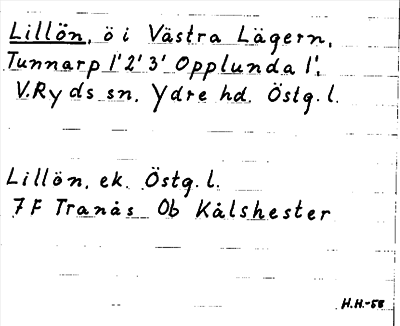 Lillön, ö i Västra Lägern,
Tunnarp 1' 2' 3' Opplunda 1',
V.Ryds sn. Ydre hd. Östg. l.
Lillön, ek. Östg. l.
7 F Tranås Ob Kålshester
H.H.-58